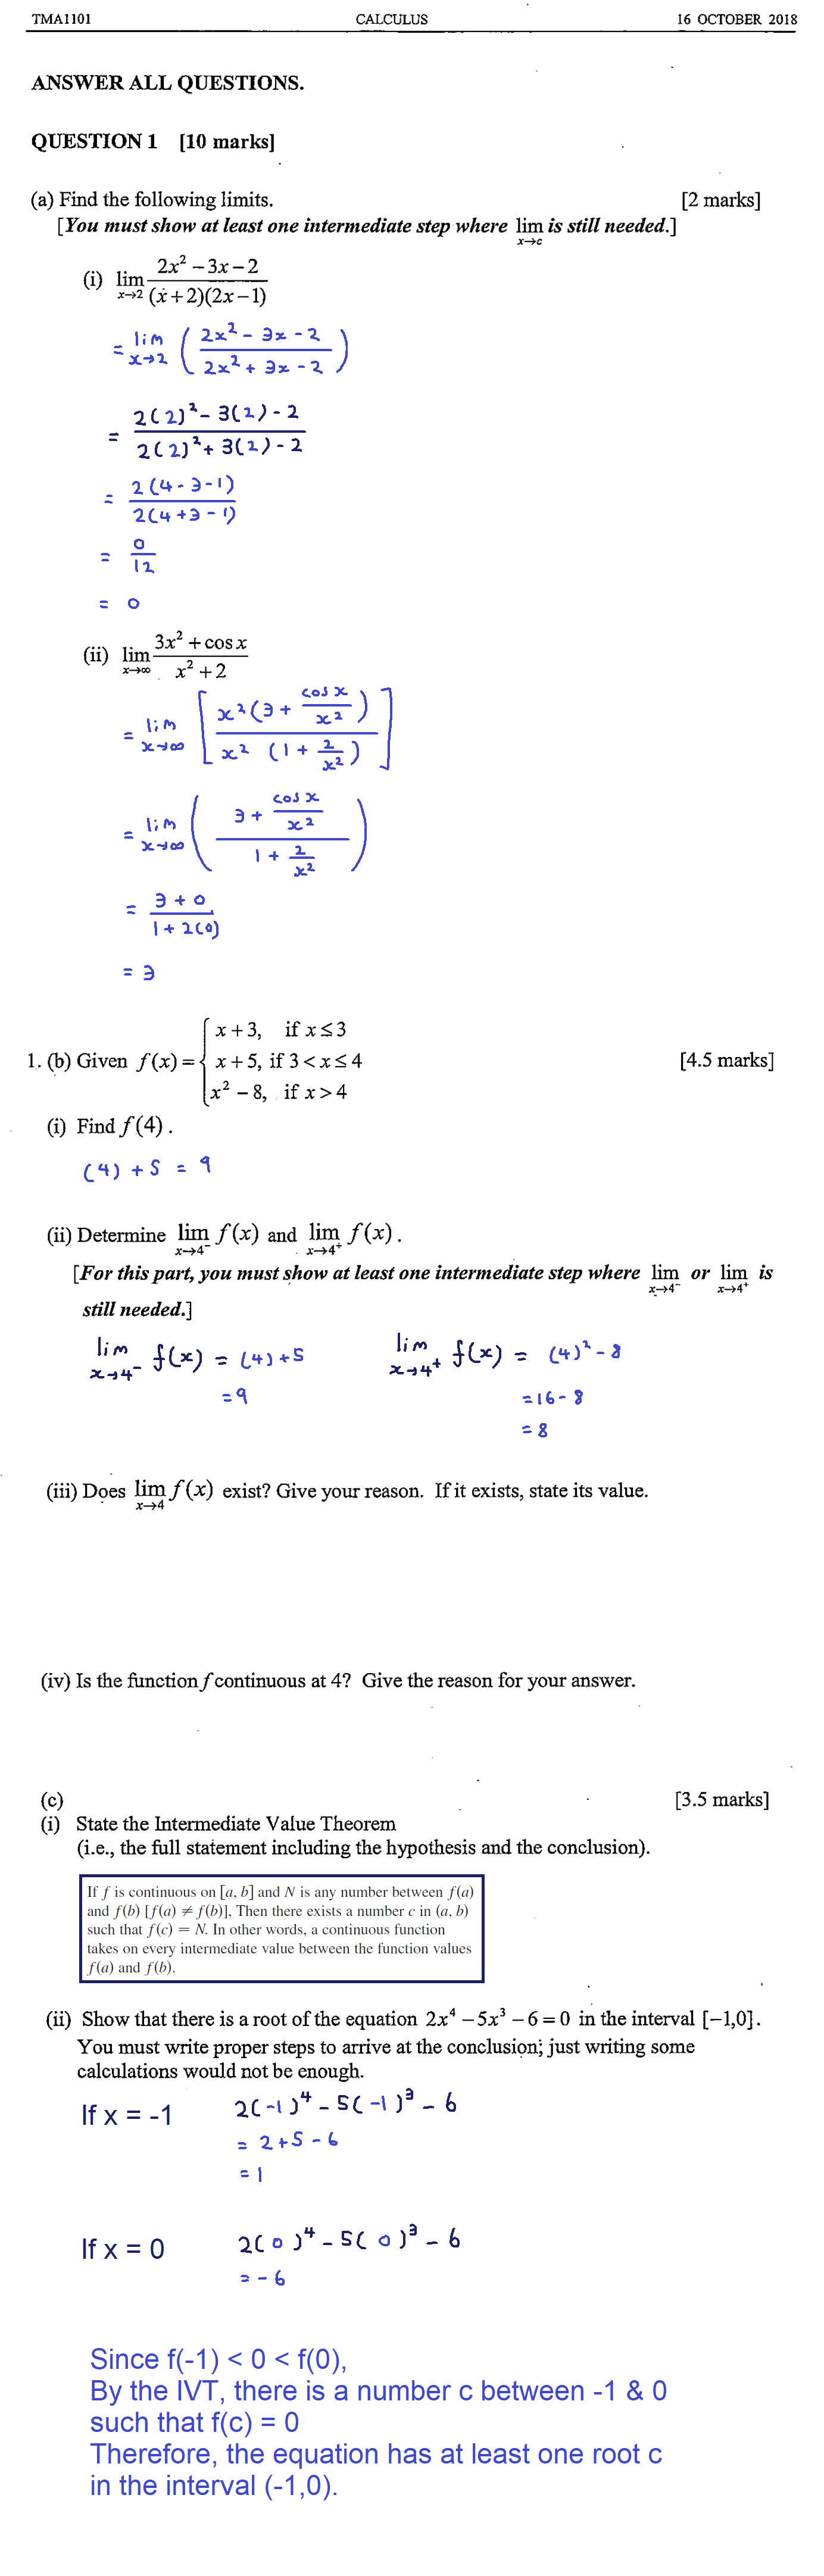 TMA1101 CALCULUS 16 OCTOBER 2018
ANSWER ALL QUESTIONS.
QUESTION 1 [10 marks]
(a) Find the following limits. [2 marks]
[You must show at least one intermediate step where lim x→c is still needed.]
(i) lim x→2 (2x² − 3x − 2)/((x + 2)(2x − 1))
= lim x→2 ((2x² − 3x − 2)/(2x² + 3x − 2))
= (2(2)² − 3(2) − 2)/(2(2)² + 3(2) − 2)
= 2(4 − 3 − 1)/2(4 + 3 − 1)
= 0/12
= 0
(ii) lim x→∞ (3x² + cos x)/(x² + 2)
= lim x→∞ [x²(3 + cos x/x²)/x²(1 + 2/x²)]
= lim x→∞ ((3 + cos x/x²)/(1 + 2/x²))
= (3 + 0)/(1 + 2(0))
= 3
1. (b) Given f(x) = { x + 3, if x ≤ 3 [4.5 marks]
x + 5, if 3 < x ≤ 4
x² − 8, if x > 4
(i) Find f(4).
(4) + 5 = 9
(ii) Determine lim x→4⁻ f(x) and lim x→4⁺ f(x).
[For this part, you must show at least one intermediate step where lim x→4⁻ or lim x→4⁺ is
still needed.]
lim x→4⁻ f(x) = (4) + 5 lim x→4⁺ f(x) = (4)² − 8
= 9 = 16 − 8
= 8
(iii) Does lim x→4 f(x) exist? Give your reason. If it exists, state its value.
(iv) Is the function f continuous at 4? Give the reason for your answer.
(c) [3.5 marks]
(i) State the Intermediate Value Theorem
(i.e., the full statement including the hypothesis and the conclusion).
If f is continuous on [a, b] and N is any number between f(a)
and f(b) [f(a) ≠ f(b)], Then there exists a number c in (a, b)
such that f(c) = N. In other words, a continuous function
takes on every intermediate value between the function values
f(a) and f(b).
(ii) Show that there is a root of the equation 2x⁴ − 5x³ − 6 = 0 in the interval [−1,0].
You must write proper steps to arrive at the conclusion; just writing some
calculations would not be enough.
If x = -1 2(-1)⁴ − 5(-1)³ − 6
= 2 + 5 − 6
= 1
If x = 0 2(0)⁴ − 5(0)³ − 6
= − 6
Since f(-1) < 0 < f(0),
By the IVT, there is a number c between -1 & 0
such that f(c) = 0
Therefore, the equation has at least one root c
in the interval (-1,0).